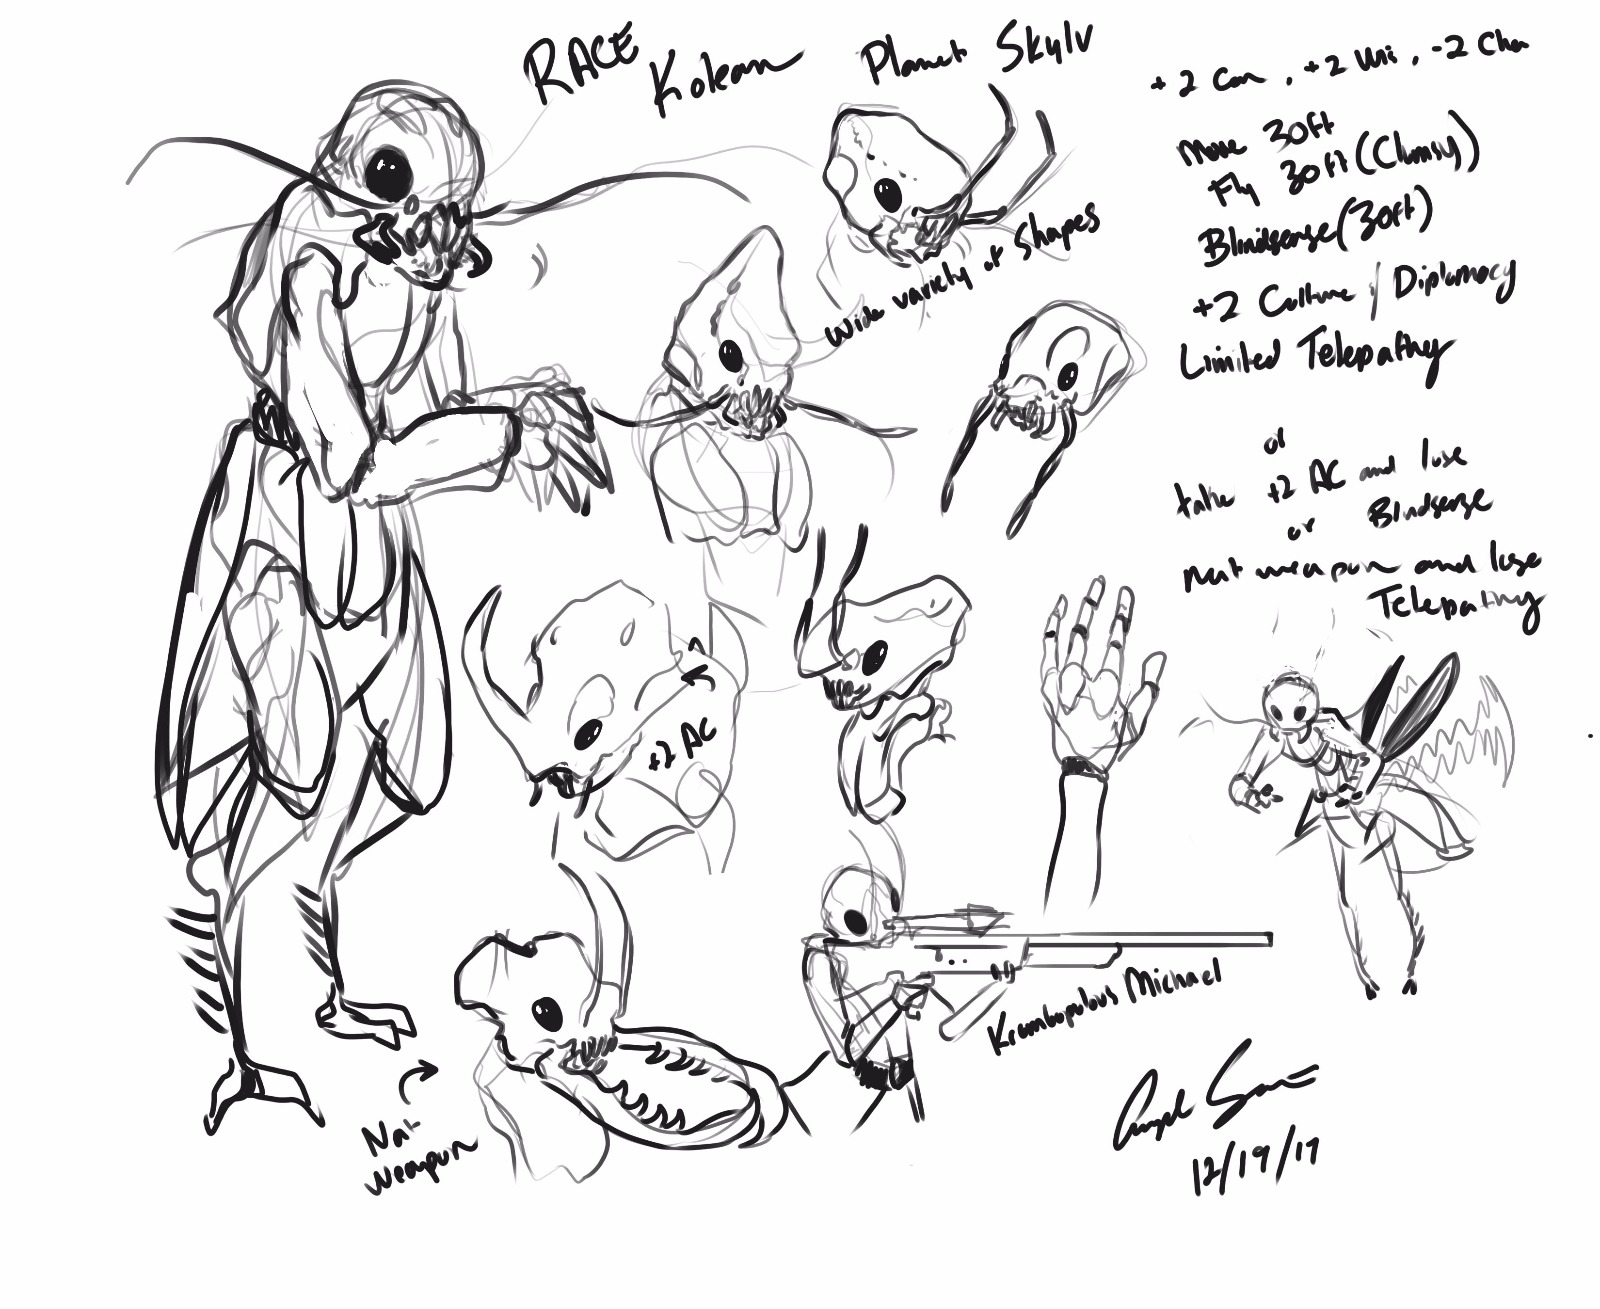 RACE Kolean Planet Skylv
+2 Con, +2 Wis, -2 Cha
Move 30ft
Fly 30ft (Clumsy)
Blindsense (30ft)
+2 Culture / Diplomacy
Limited Telepathy
or
take +2 AC and lose
Blindsense
or
Nat weapon and lose
Telepathy
Wide variety of Shapes
+2 AC
Krombopulous Michael
Nat
weapon
Angel
12/19/17